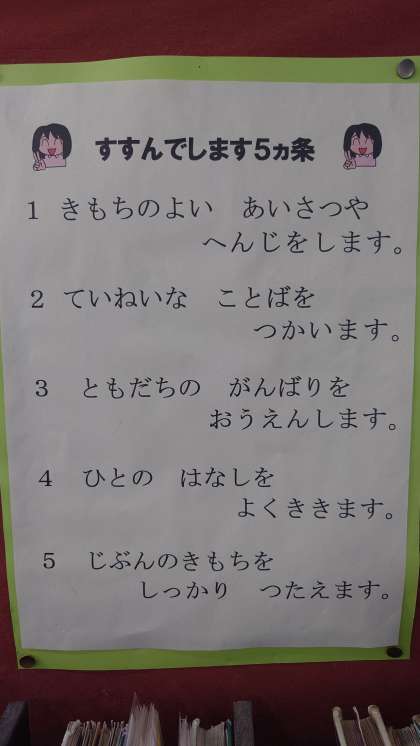 すすんでします5ヵ条
1 きもちのよい あいさつや
へんじをします。
2 ていねいな ことばを
つかいます。
3 ともだちの がんばりを
おうえんします。
4 ひとの はなしを
よくききます。
5 じぶんのきもちを
しっかり つたえます。